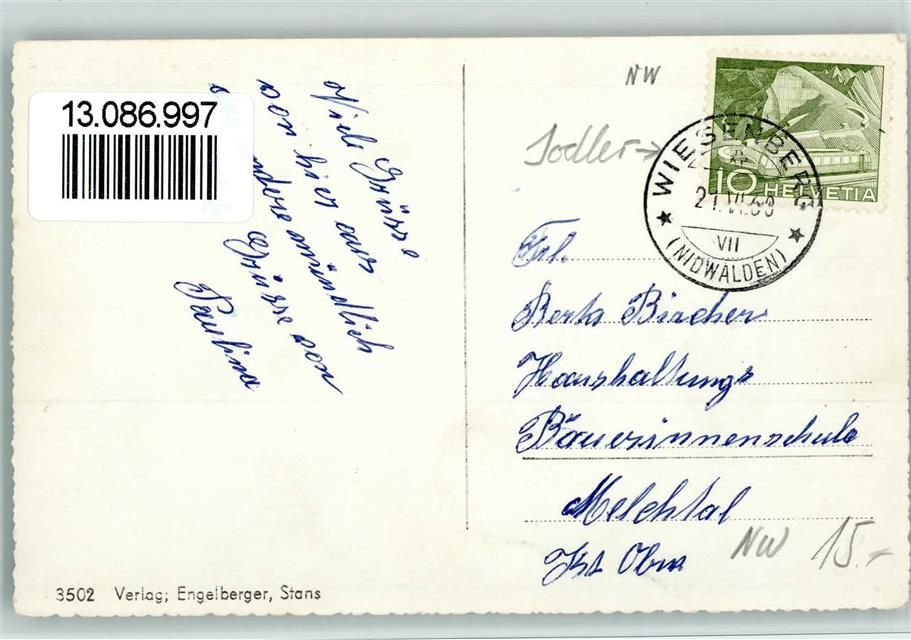 13.086.997
Viele Grüsse
von hier aus
andere mündlich
Grüsse von
Paulina
NW
Jodler →
10 HELVETIA
WIESENBERG
VII
(NIDWALDEN)
Frl.
Berta Bircher
Haushaltungs
Bäuerinnenschule
Melchtal
Kt Obw
NW 15.-
3502 Verlag; Engelberger, Stans